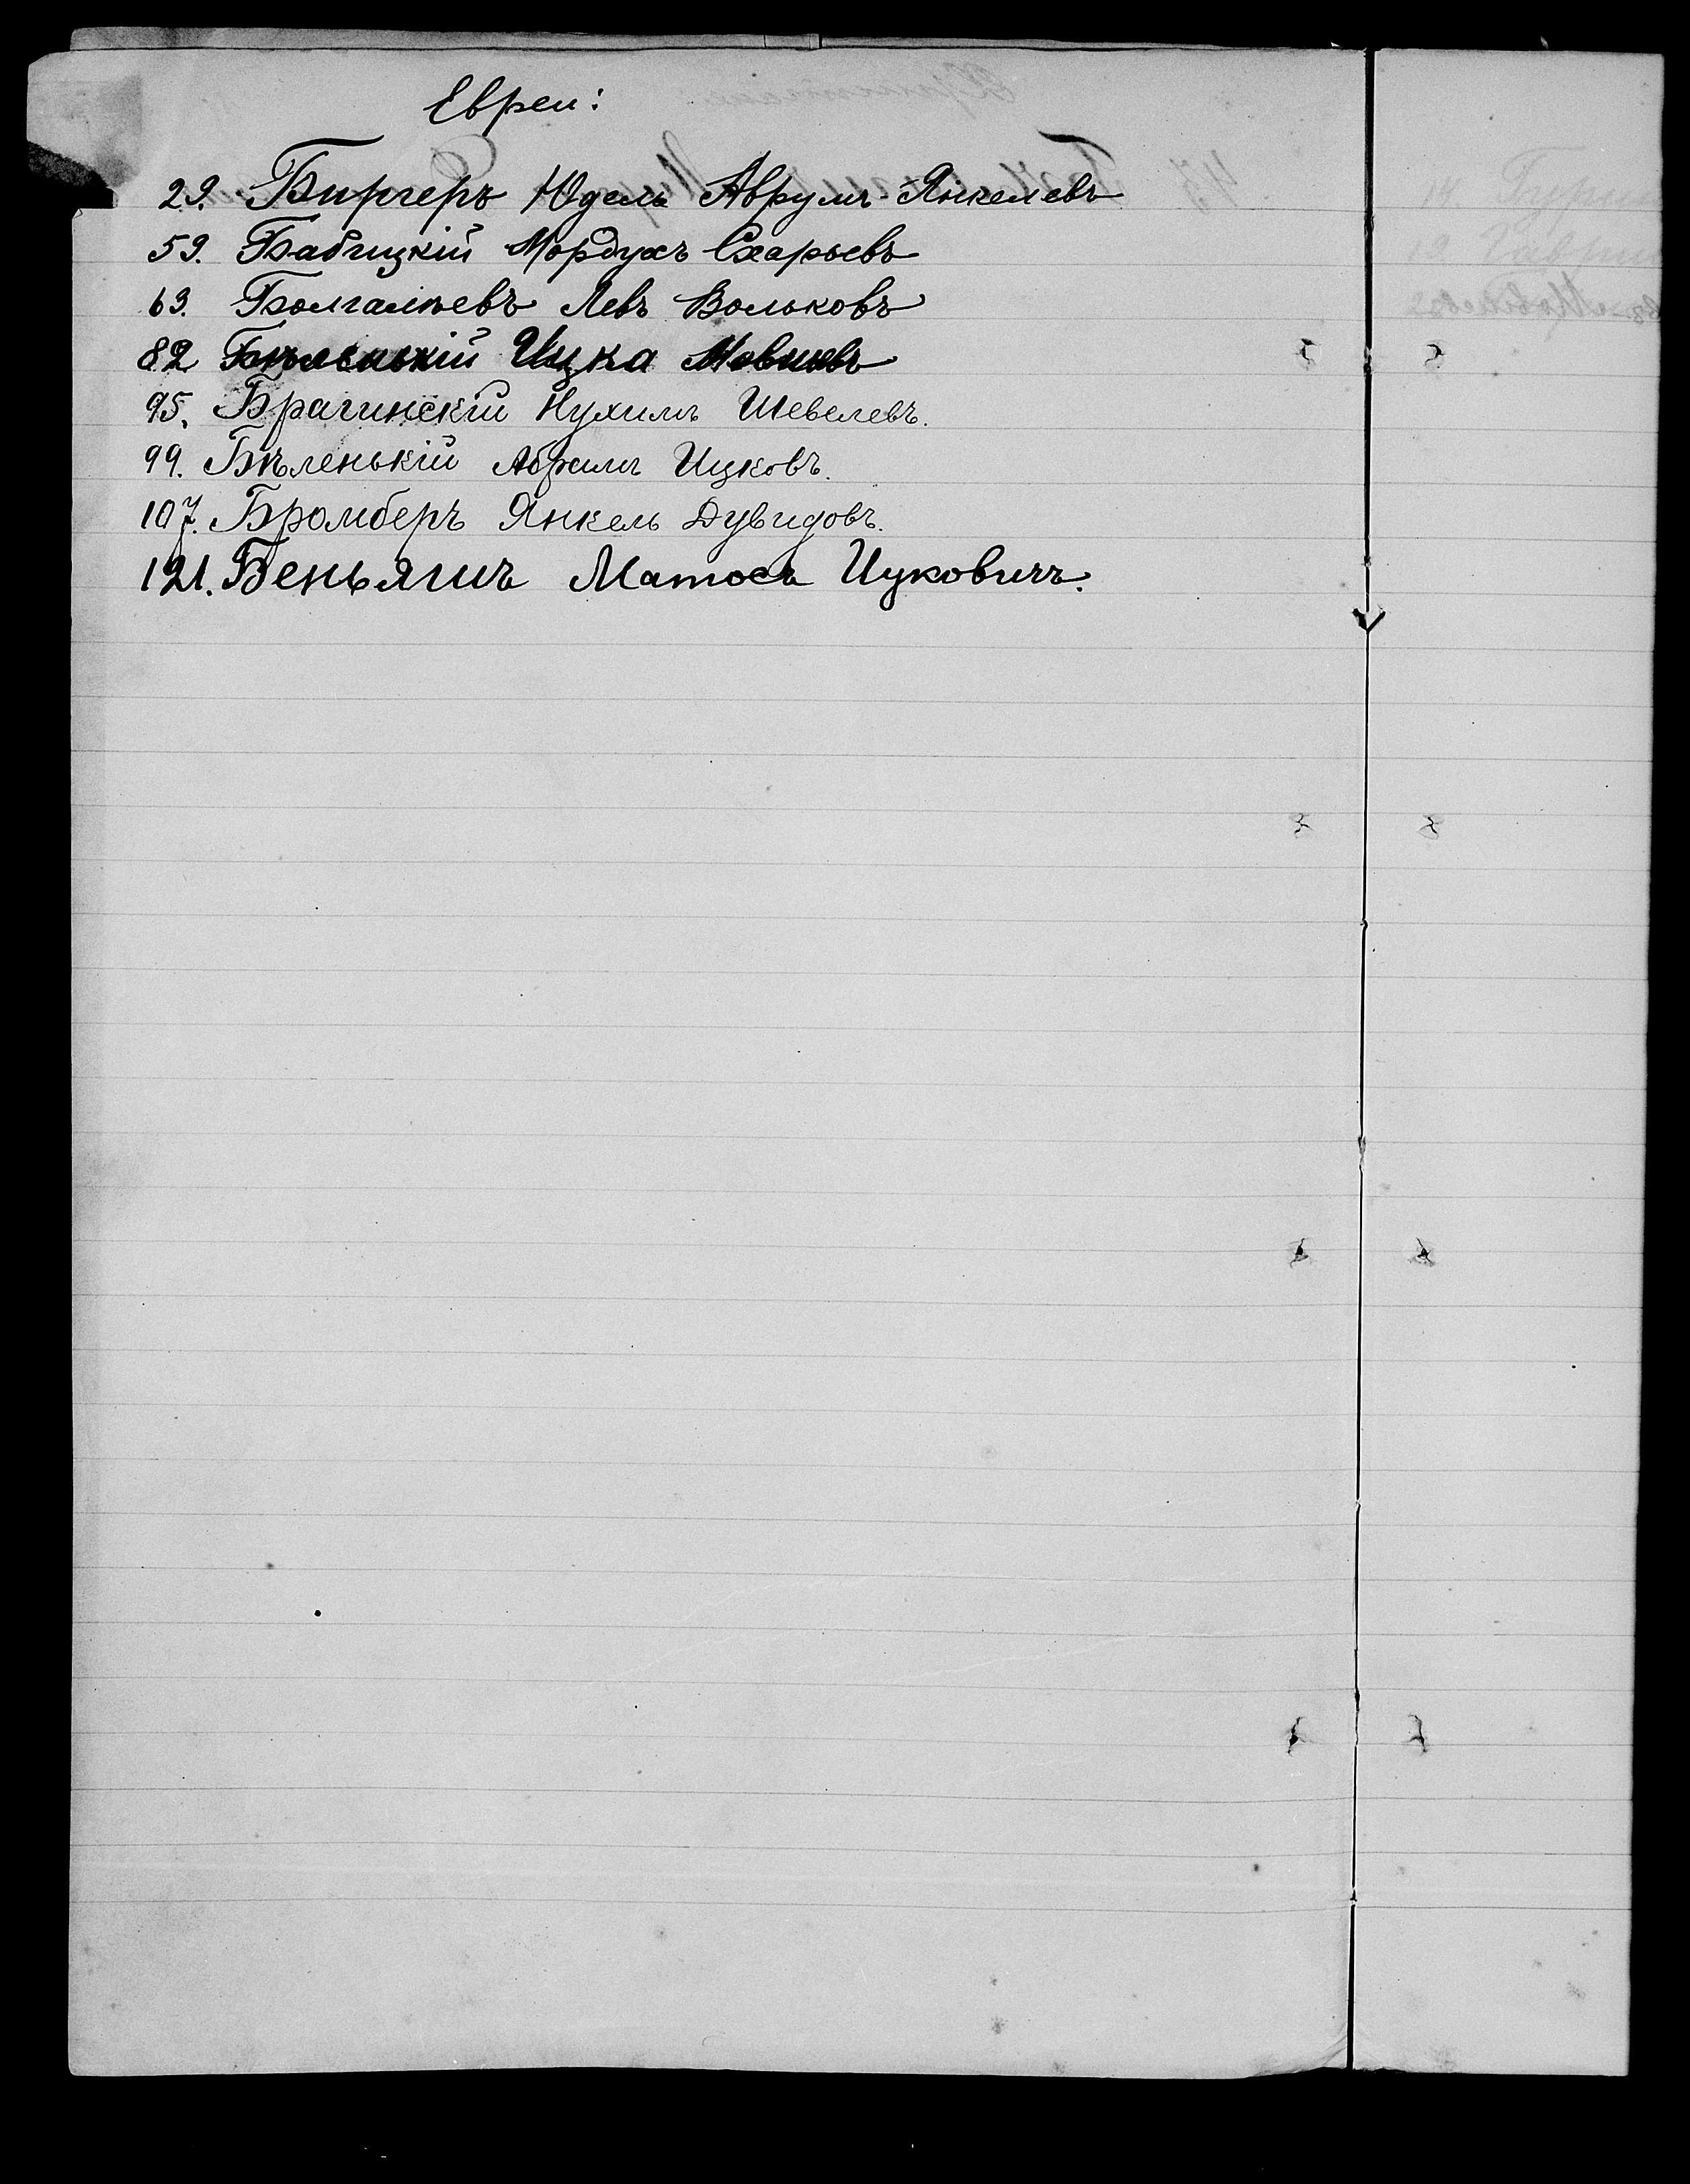 Евреи:
29. Биргеръ Юдель Аврумъ-Янкелевъ
59. Бабицкій Мордухъ Схарьевъ
63. Болгалѣевъ Левъ Вольковъ
82 Бѣленькій Ицка Мовшевъ
95. Брагинскій Нухимъ Шевелевъ.
99. Бѣленькій Абрамъ Ицковъ.
107. Бромберъ Янкель Дувидовъ.
121. Беньяшъ Матосъ Ицковичъ.